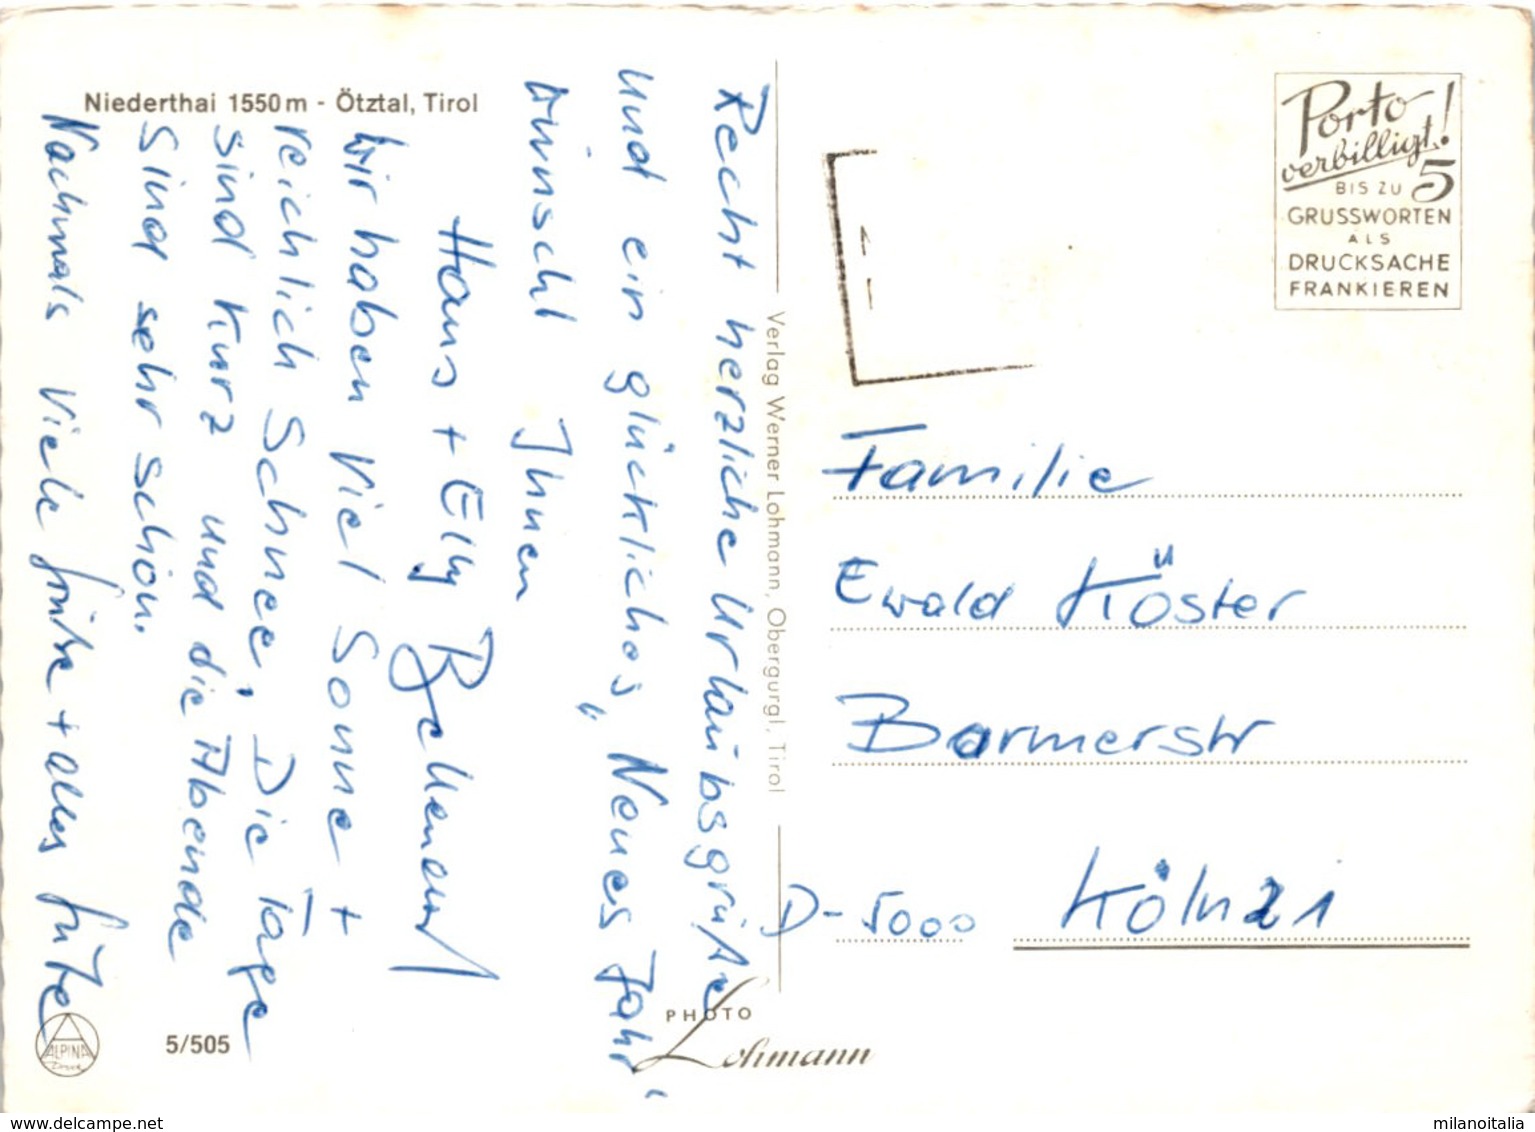 Niederthai 1550 m - Ötztal, Tirol
Recht herzliche Urlaubsgrüße
und ein glückliches „Neues Jahr“
wünscht Ihnen
Hans + Elly
Wir haben viel Sonne +
reichlich Schnee, Die Tage
sind Kurz und die Abende
sind sehr schön.
Nachmals Viele Grüße + alles Gute
Verlag Werner Lohmann, Obergurgl, Tirol
Porto
verbilligt!
BIS ZU 5
GRUSSWORTEN
ALS
DRUCKSACHE
FRANKIEREN
Familie
Ewald Köster
Barmerstr
D-5000 Köln 21
PHOTO
Lohmann
ALPINA
Druck
5/505
www.delcampe.net
milanoitalia